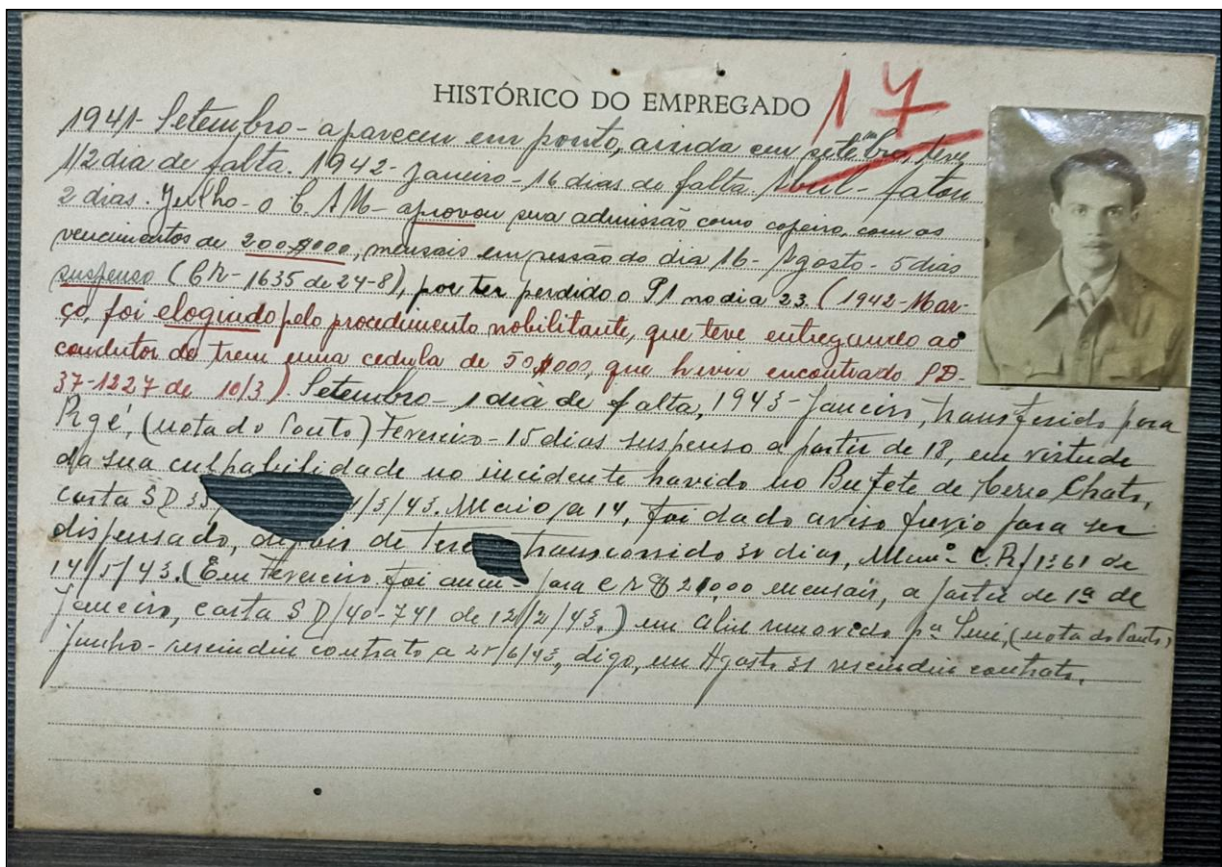 HISTÓRICO DO EMPREGADO 17
1941- Setembro - apareceu em ponto, ainda em setembro, teve
1/2 dia de falta. 1942 - Janeiro - 16 dias de falta. Abril - faltou
2 dias. Julho - o C.A.M - aprovou sua admissão como copeiro, com os
vencimentos de 200$000, mensais em sessão do dia 16 - Agosto - 5 dias
suspenso (CR - 1635 de 24-8), por ter perdido o P1 no dia 23. (1942 - Mar-
ço, foi elogiado pelo procedimento nobilitante, que teve entregando ao
condutor de trem uma cedula de 50$000, que havia encontrado PD-
37-1227 de 10/3). Setembro - 1 dia de falta, 1943 - Janeiro, transferido para
(nota do Couto) Fevereiro - 15 dias suspenso a partir de 18, em virtude
da sua culpabilidade no incidente havido no Bufete de Cerro Chato,
carta SD 35 /3/43. Maio, a 14, foi dado aviso previo para ser
dispensado, depois de transcorrido 30 dias, Memº C.R/1361 de
14/5/43. (Em Fevereiro foi aum- para CR$ mensais, a partir de 1º de
Janeiro, carta SD/40-741 de 12/2/43.) em removido pª (nota do Couto)
Junho - rescindiu contrato a /6/43, digo, em Agosto 31 rescindiu contrato.